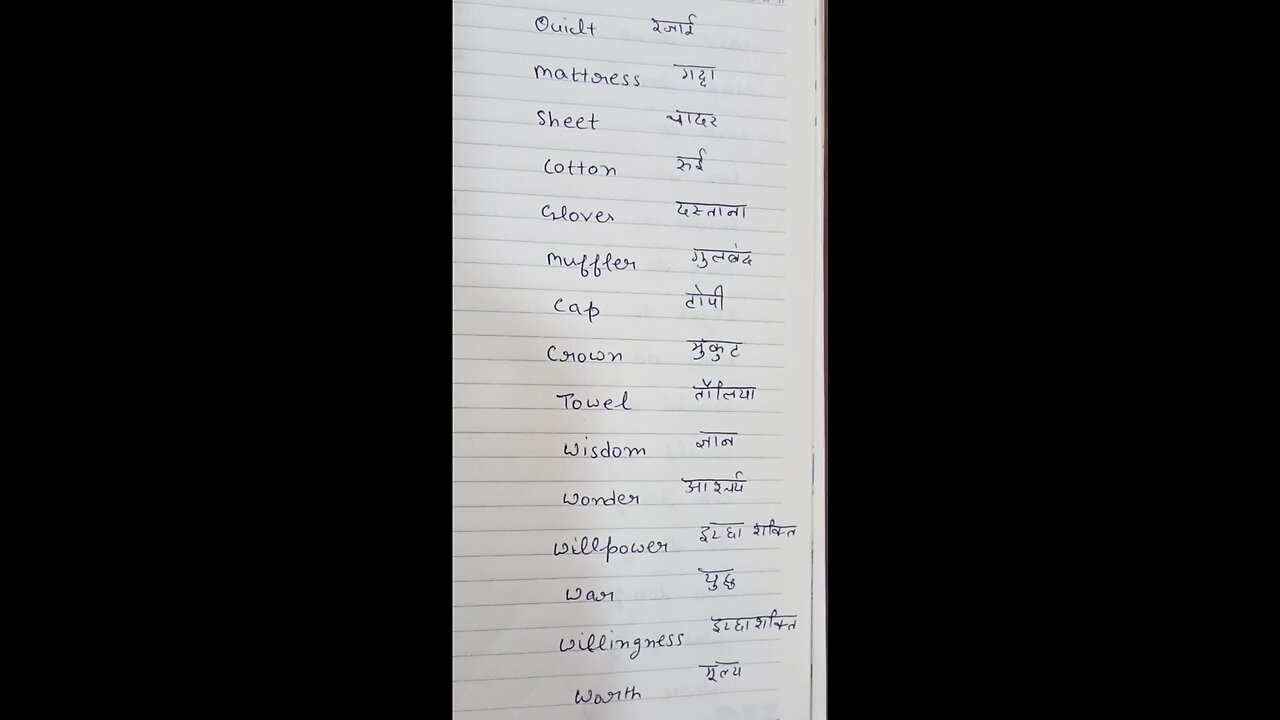 Quilt रजाई
Mattress गद्दा
Sheet चादर
Cotton रुई
Gloves दस्ताना
Muffler गुलबंद
Cap टोपी
Crown मुकुट
Towel तौलिया
Wisdom ज्ञान
Wonder आश्चर्य
Willpower इच्छा शक्ति
War युद्ध
Willingness इच्छाशक्ति
Worth मूल्य